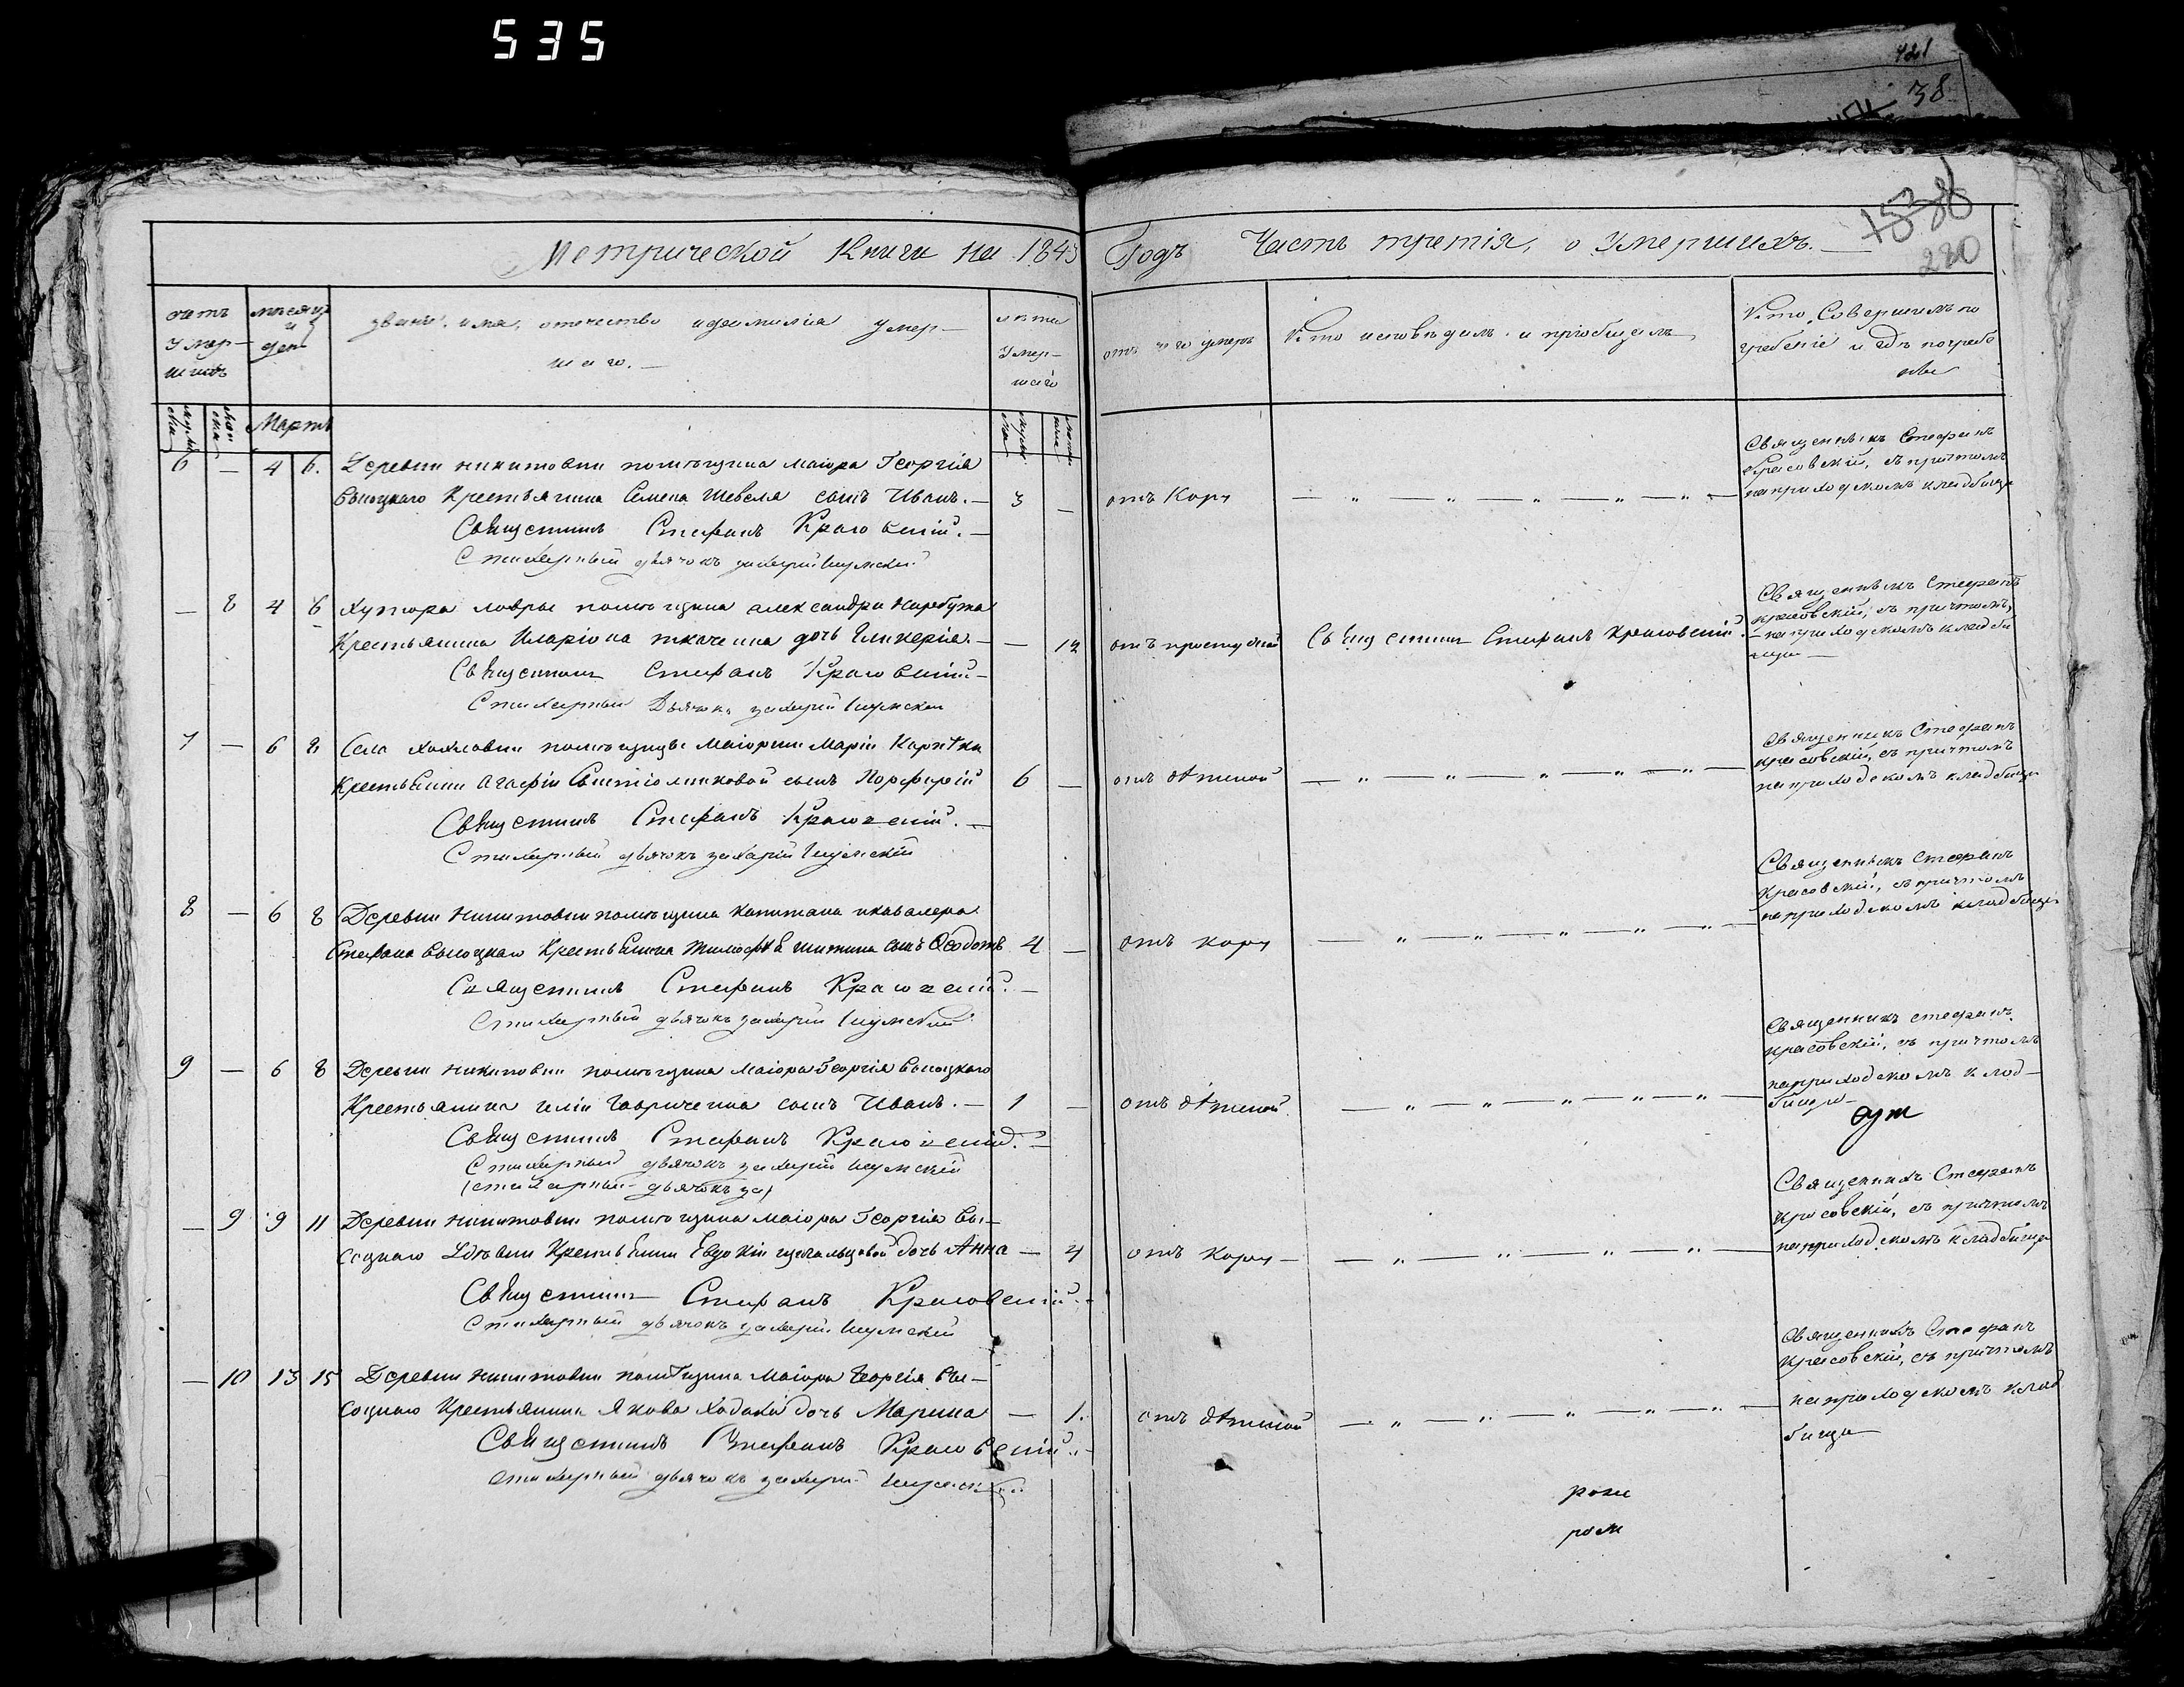 535
421
38
153
38
220
Метрической Книги на 1843 Годъ Часть третія, о Умершихъ.
счетъ умершихъ
мѣсяцъ и день
званіе, имя, отечество и фамилія умершаго.
лѣта умершаго
отъ чего умеръ
Кто исповѣдалъ и пріобщалъ
Кто Совершилъ погребеніе и гдѣ погребены
Мартъ
6 — 4 6. Деревни никитовки помѣщика маіора Георгія
Высоцкаго Крестьянина Семена Шевеля сынъ Иванъ. — 3 — отъ Кору
Священникъ Стефанъ Красовскій. —
Стихарный дьячокъ захарій Шумскій
Священникъ Стефанъ
Красовскій, съ причтомъ
на приходскомъ кладбище
— 8 4 6 Хутора лавры помѣщика александра
Крестьянина Иларіона ткаченка дочь Гликерія. — — 12 отъ простудной Священникъ Стефанъ Красовскій.
Священникъ Стефанъ Красовскій —
Стихарный Дьячокъ захарій Шумскій
Священникъ Стефанъ
красовскій, съ причтомъ,
на приходскомъ кладби
ще —
7 — 6 8 Села хохловки помѣщицы Маіорши Маріи
Крестьянки Агафіи сынъ Порфирій 6 — отъ
Священникъ Стефанъ Красовскій. —
Стихарный дьячокъ захарій Шумскій
Священникъ Стефанъ
красовскій, съ причтомъ
на приходскомъ кладбище
8 — 6 8 Деревни Никитовки помѣщика капитана и кавалера
Стефана Высоцкаго Крестьянина сынъ Ѳеодотъ 4 — отъ кору
Священникъ Стефанъ Красовскій. —
Стихарный дьячокъ захарій Шумскій
Священникъ Стефанъ
Красовскій, съ причтомъ
на приходскомъ кладбище
9 — 6 8 Деревни никитовки помѣщика Маіора Георгія Высоцкаго
Крестьянина иліи Гавриченка сынъ Иванъ. — 1 — отъ
Священникъ Стефанъ Красовскій. —
Стихарный дьячокъ захарій Шумскій
(стихарный дьячокъ за)
Священникъ стефанъ
красовскій, съ причтомъ
на приходскомъ клад-
бище
— 9 9 11 Деревни Никитовки помѣщика маіора Георгія Вы-
соцкаго Крестьянки Евдокіи дочь Анна — 4 отъ кору —
Священникъ Стефанъ Красовскій. —
Стихарный дьячокъ захарій Шумскій
Священникъ Стефанъ
Красовскій, съ причтомъ
на приходскомъ кладбище
— 10 13 15 Деревни никитовки помѣщика Маіора Георгія Вы-
соцкаго Крестьянина Якова дочь Марина — 1. отъ
Священникъ Стефанъ Красовскій. —
стихарный дьячокъ захарій Шумскій
Священникъ Стефанъ
Красовскій, съ причтомъ
на приходскомъ клад
бище